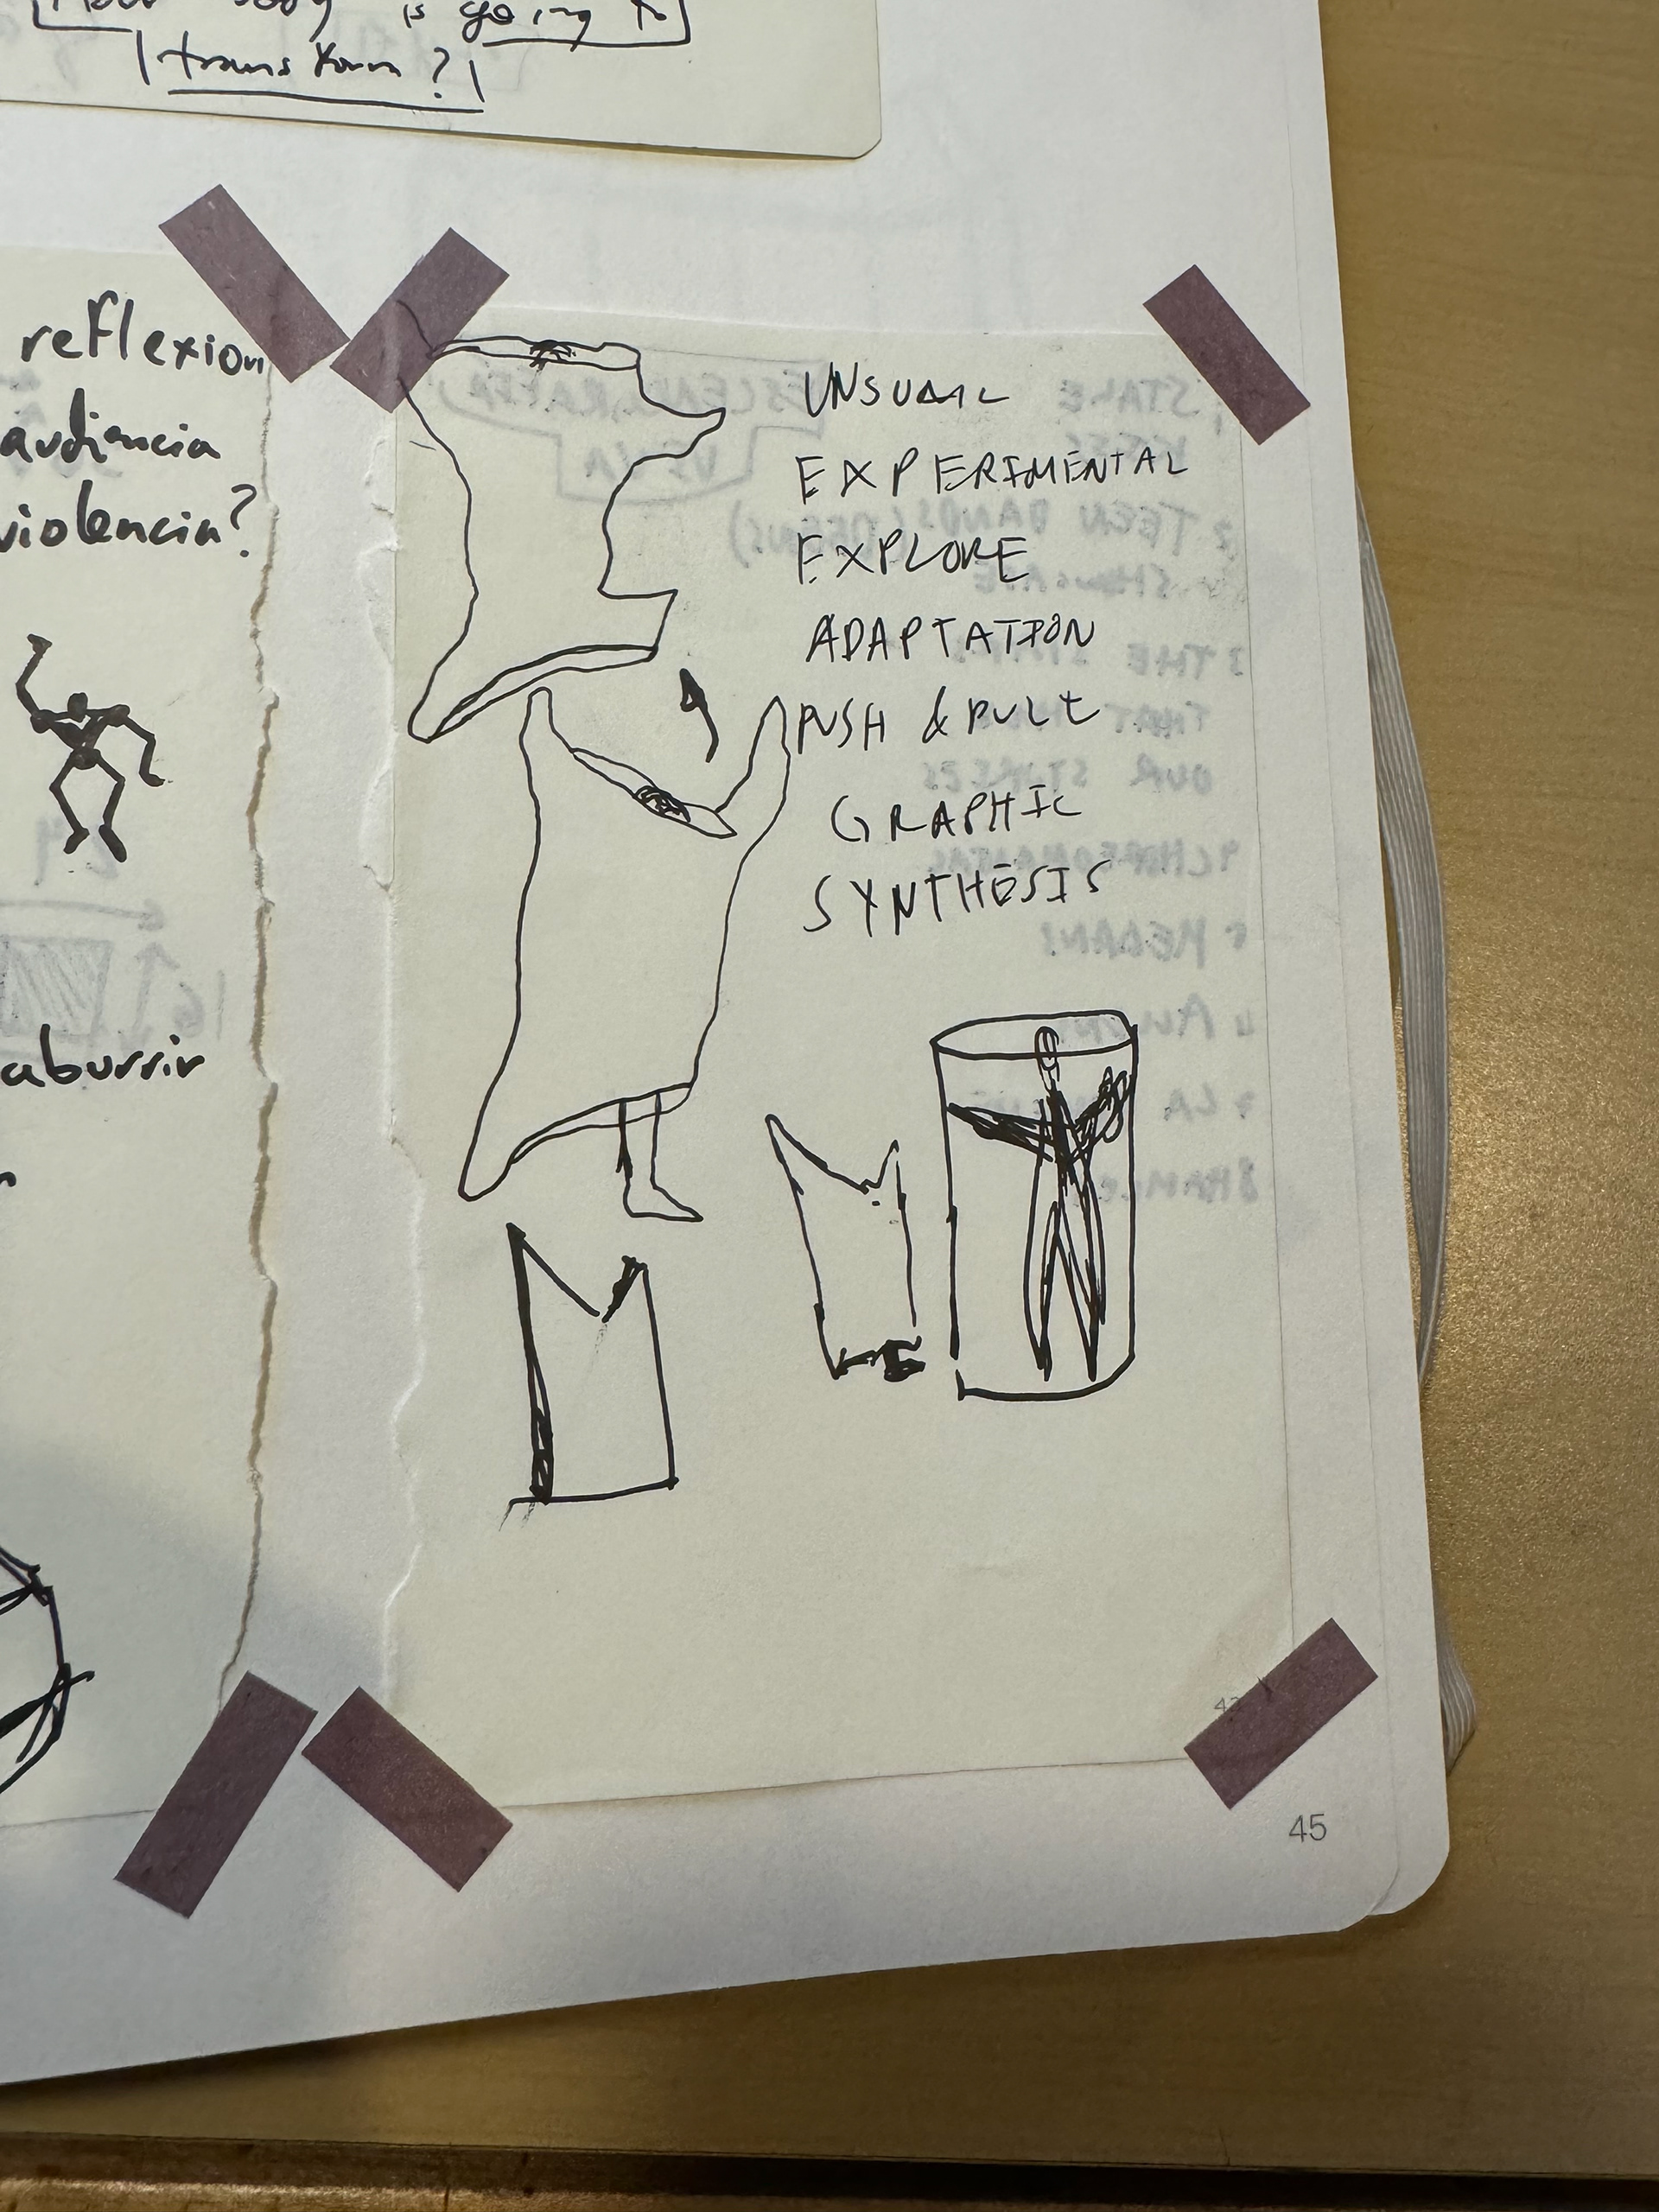 body is going to
transform?
reflexion
audiencia
violencia?
aburrir
UNSUAL
EXPERIMENTAL
EXPLORE
ADAPTATION
PUSH & PULL
GRAPHIC
SYNTHESIS
45